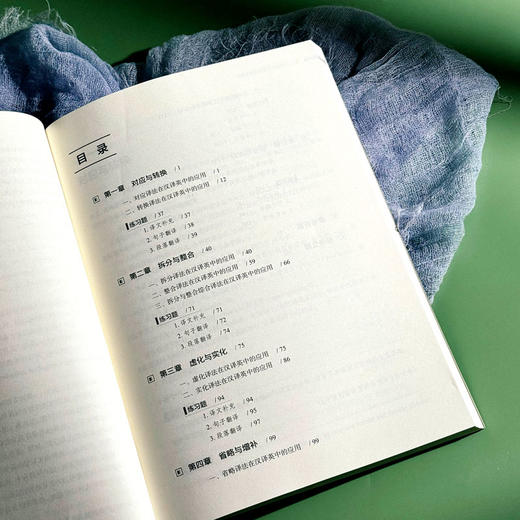 目录
第一章 对应与转换 /1
一、对应译法在汉译英中的应用 /1
二、转换译法在汉译英中的应用 /12
练习题 /37
1. 译文补充 /37
2. 句子翻译 /38
3. 段落翻译 /39
第二章 拆分与整合 /40
一、拆分译法在汉译英中的应用 /40
二、整合译法在汉译英中的应用 /59
三、拆分与整合综合译法在汉译英中的应用 /66
练习题 /71
1. 译文补充 /71
2. 句子翻译 /72
3. 段落翻译 /74
第三章 虚化与实化 /75
一、虚化译法在汉译英中的应用 /75
二、实化译法在汉译英中的应用 /86
练习题 /94
1. 译文补充 /94
2. 句子翻译 /95
3. 段落翻译 /97
第四章 省略与增补 /99
一、省略译法在汉译英中的应用 /99